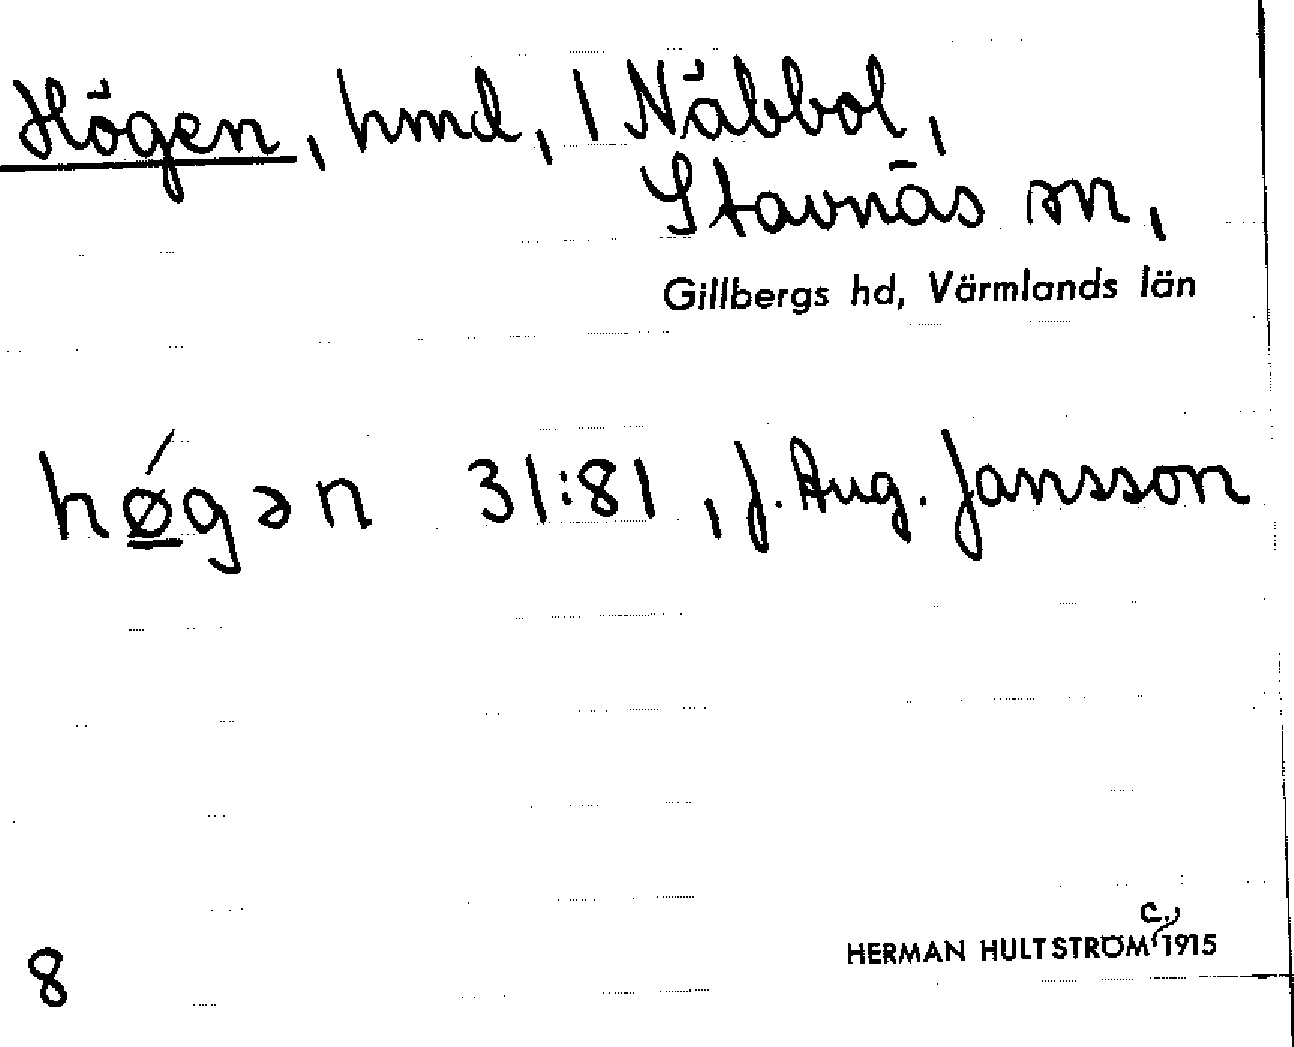 Högen, hmd, 1 Näbbol,
Stavnäs sn,
Gillbergs hd, Värmlands län
hǿgən 31:81, J. Aug. Jansson
8
HERMAN HULTSTRÖM c., 1915